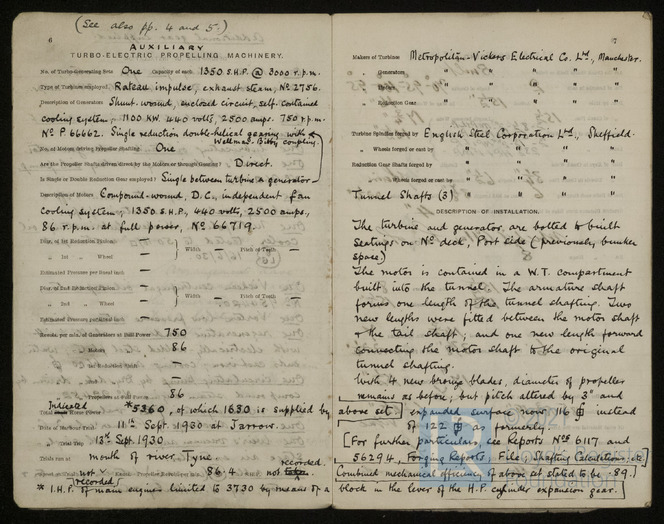 (See also pp. 4 and 5.)
6
AUXILIARY
TURBO-ELECTRIC PROPELLING MACHINERY.
No. of Turbo-Generating Sets One Capacity of each 1350 S.H.P. @ 3000 r.p.m.
Type of Turbines employed Rateau impulse, exhaust steam, No 2756.
Description of Generators Shunt-wound, enclosed circuit, self-contained
cooling system, 1100 KW. 440 volts, 2500 amps. 750 r.p.m.
No P 66662. Single reduction double-helical gearing with
Wellman-Bibby coupling.
No. of Motors driving Propeller Shafting One
Are the Propeller Shafts driven direct by the Motors or through Gearing? Direct.
Is Single or Double Reduction Gear employed? Single between turbine & generator
Description of Motors Compound-wound, D.C., independent fan
cooling system, 1350 S.H.P., 440 volts, 2500 amps.,
86 r.p.m. at full power, No 66719.
Diar. of 1st Reduction Pinion —
„ 1st „ Wheel — Width — Pitch of Teeth —
Estimated Pressure per lineal inch —
Diar. of 2nd Reduction Pinion —
„ 2nd „ Wheel — Width — Pitch of Teeth —
Estimated Pressure per lineal inch —
Revols. per min. of Generators at Full Power 750
„ „ Motors „ 86
„ „ 1st Reduction Shaft —
„ „ 2nd „ —
„ „ Propellers at Full Power 86
Indicated
Total Horse Power *5360, of which 1630 is supplied by
Date of Harbour Trial 11th Sept. 1930 at Jarrow.
„ Trial Trip 13th Sept. 1930
Trials run at mouth of river Tyne
not recorded 86.4 not taken recorded.
* I.H.P. of main engines limited to 3730 by means of a
7
Makers of Turbines Metropolitan-Vickers Electrical Co. Ltd., Manchester.
„ Generators „ „ „ „
„ Motors „ „ „ „
„ Reduction Gear „ „ „ „
Turbine Spindles forged by English Steel Corporation Ltd., Sheffield.
„ Wheels forged or cast by „ „ „ „
Reduction Gear Shafts forged by „ „ „ „
„ Wheels forged or cast by „ „ „ „
Tunnel Shafts (3) „ „ „ „
DESCRIPTION OF INSTALLATION.
The turbine and generator are bolted to built
seatings on No deck, Port side (previously bunker
space)
The motor is contained in a W.T. compartment
built into the tunnel. The armature shaft
forms one length of the tunnel shafting. Two
new lengths were fitted between the motor shaft
& the tail shaft, and one new length forward
connecting the motor shaft to the original
tunnel shafting.
With 4 new bronze blades, diameter of propeller
remains as before, but pitch altered by 3" and
above set. expanded surface now 116 instead
of 122 as formerly.
[For further particulars, see Reports Nos 6117 and
56294, Forging Reports, File, Shafting Calculations, etc]
Combined mechanical efficiency of above set stated to be .89.
block in the lever of the H.P. cylinder expansion gear.